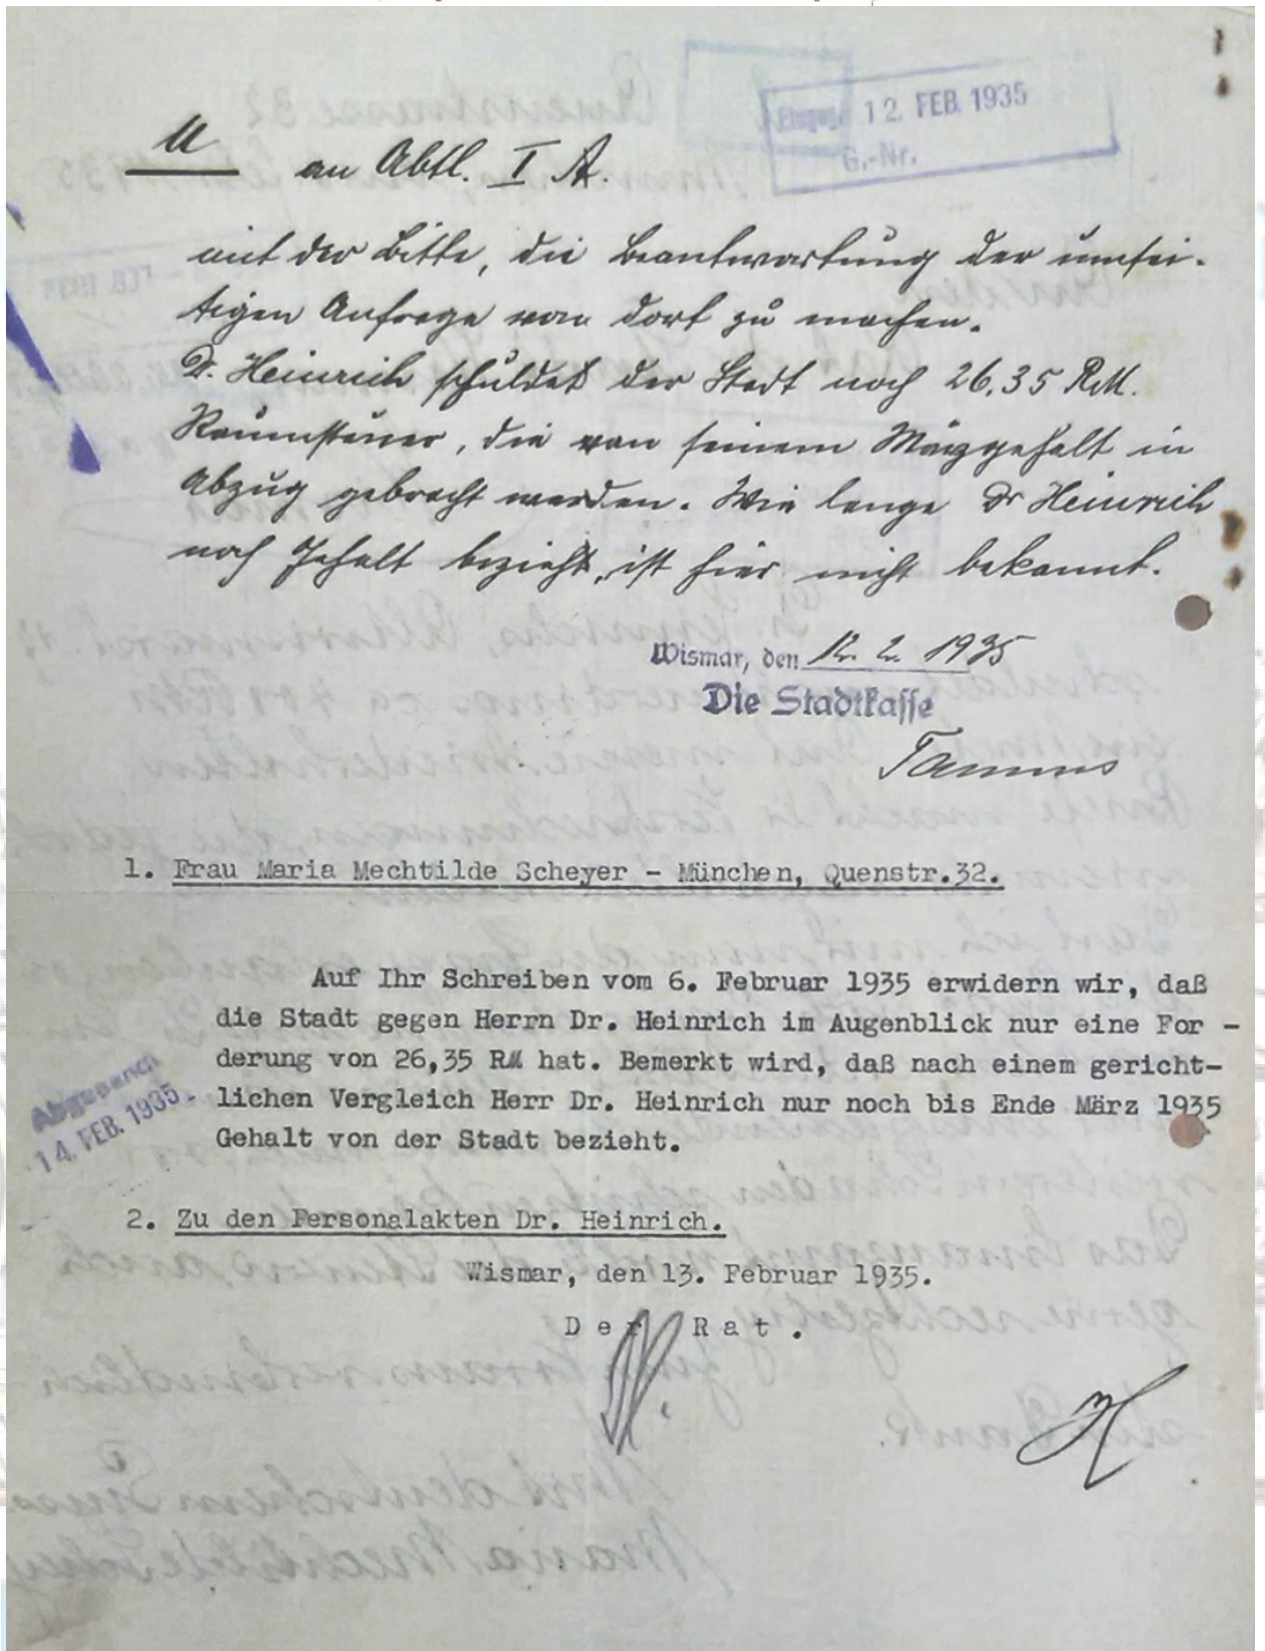 Eingeg. 12. FEB. 1935
G.-Nr.
U
an Abtl. I A.
mit der Bitte, die Beantwortung der umsei-
tigen Anfrage von dort zu machen.
Dr. Heinrich schuldet der Stadt noch 26.35 RM.
Raumsteuer, die von seinem Märzgehalt in
Abzug gebracht werden. Wie lange Dr Heinrich
noch Gehalt bezieht, ist hier nicht bekannt.
Wismar, den 12. 2. 1935
Die Stadtkasse
1. Frau Maria Mechtilde Scheyer - München, Quenstr.32.
Auf Ihr Schreiben vom 6. Februar 1935 erwidern wir, daß
die Stadt gegen Herrn Dr. Heinrich im Augenblick nur eine For -
derung von 26,35 RM hat. Bemerkt wird, daß nach einem gericht-
lichen Vergleich Herr Dr. Heinrich nur noch bis Ende März 1935
Gehalt von der Stadt bezieht.
Abgesandt
14. FEB. 1935
2. Zu den Personalakten Dr. Heinrich.
Wismar, den 13. Februar 1935.
Der Rat.